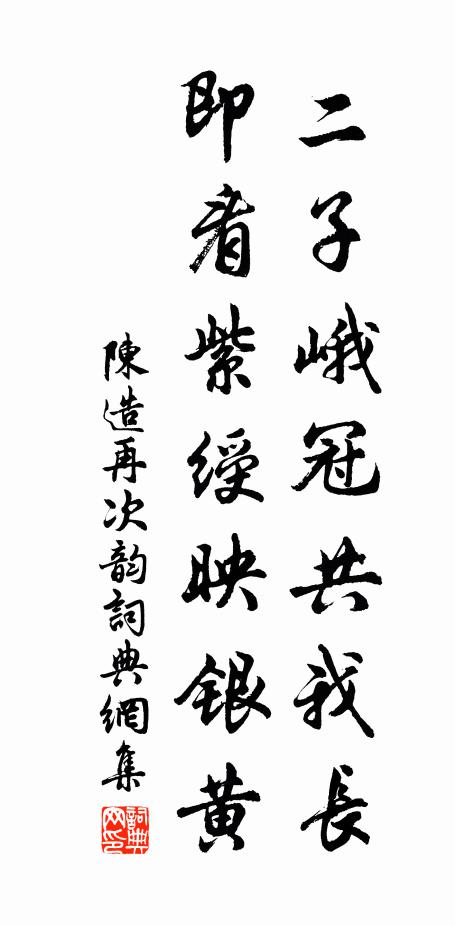 二子峨冠共我長
即看紫綬映銀黃
陳造再次韵詞典網集
詞典網印